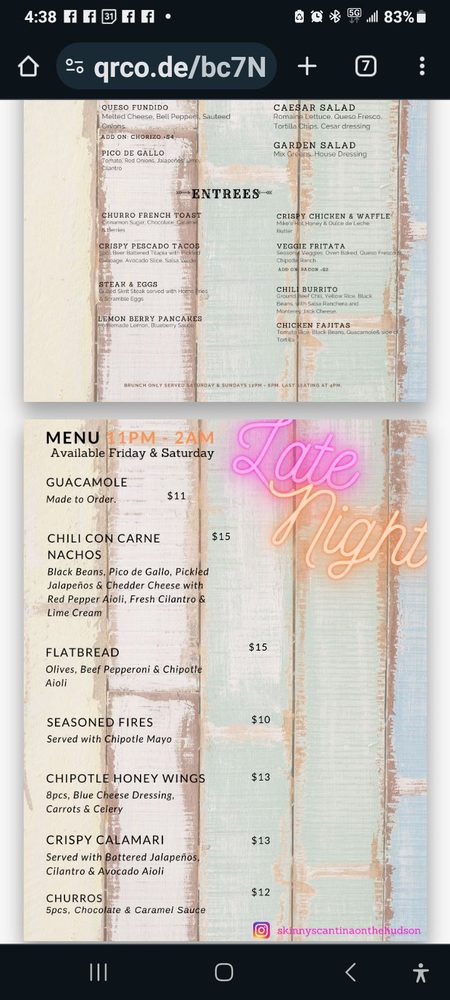 4:38
31
5G
83%
qrco.de/bc7N
7
QUESO FUNDIDO
Melted Cheese, Bell Peppers, Sauteed
Onions.
ADD ON: CHORIZO +$4
PICO DE GALLO
Tomato, Red Onions, Jalapeños, Lime,
Cilantro
CAESAR SALAD
Romaine Lettuce, Queso Fresco,
Tortilla Chips, Cesar dressing
GARDEN SALAD
Mix Greens, House Dressing
ENTREES
CHURRO FRENCH TOAST
Cinnamon Sugar, Chocolate, Caramel
& Berries
CRISPY PESCADO TACOS
Beer Battered Tilapia with Pickled
Cabbage, Avocado Slice, Salsa Verde
STEAK & EGGS
Grilled Skirt Steak served with Home Fries
& Scramble Eggs
LEMON BERRY PANCAKES
Homemade Lemon, Blueberry Sauce
CRISPY CHICKEN & WAFFLE
Mike's Hot Honey & Dulce de Leche
Butter
VEGGIE FRITATA
Seasonal Veggies, Oven Baked, Queso Fresco
Chipotle Ranch
ADD ON: BACON +$2
CHILI BURRITO
Ground Beef Chili, Yellow Rice, Black
Beans, with Salsa Ranchera and
Monterey Jack Cheese
CHICKEN FAJITAS
Tomato Rice, Black Beans, Guacamole& side of
Tortillas
BRUNCH ONLY SERVED SATURDAY & SUNDAYS 12PM - 5PM. LAST SEATING AT 4PM.
MENU 11PM - 2AM
Available Friday & Saturday
Late
Night
GUACAMOLE
Made to Order. $11
CHILI CON CARNE $15
NACHOS
Black Beans, Pico de Gallo, Pickled
Jalapeños & Chedder Cheese with
Red Pepper Aioli, Fresh Cilantro &
Lime Cream
FLATBREAD $15
Olives, Beef Pepperoni & Chipotle
Aioli
SEASONED FIRES $10
Served with Chipotle Mayo
CHIPOTLE HONEY WINGS $13
8pcs, Blue Cheese Dressing,
Carrots & Celery
CRISPY CALAMARI $13
Served with Battered Jalapeños,
Cilantro & Avocado Aioli
CHURROS $12
5pcs, Chocolate & Caramel Sauce
skinnyscantinaonthehudson